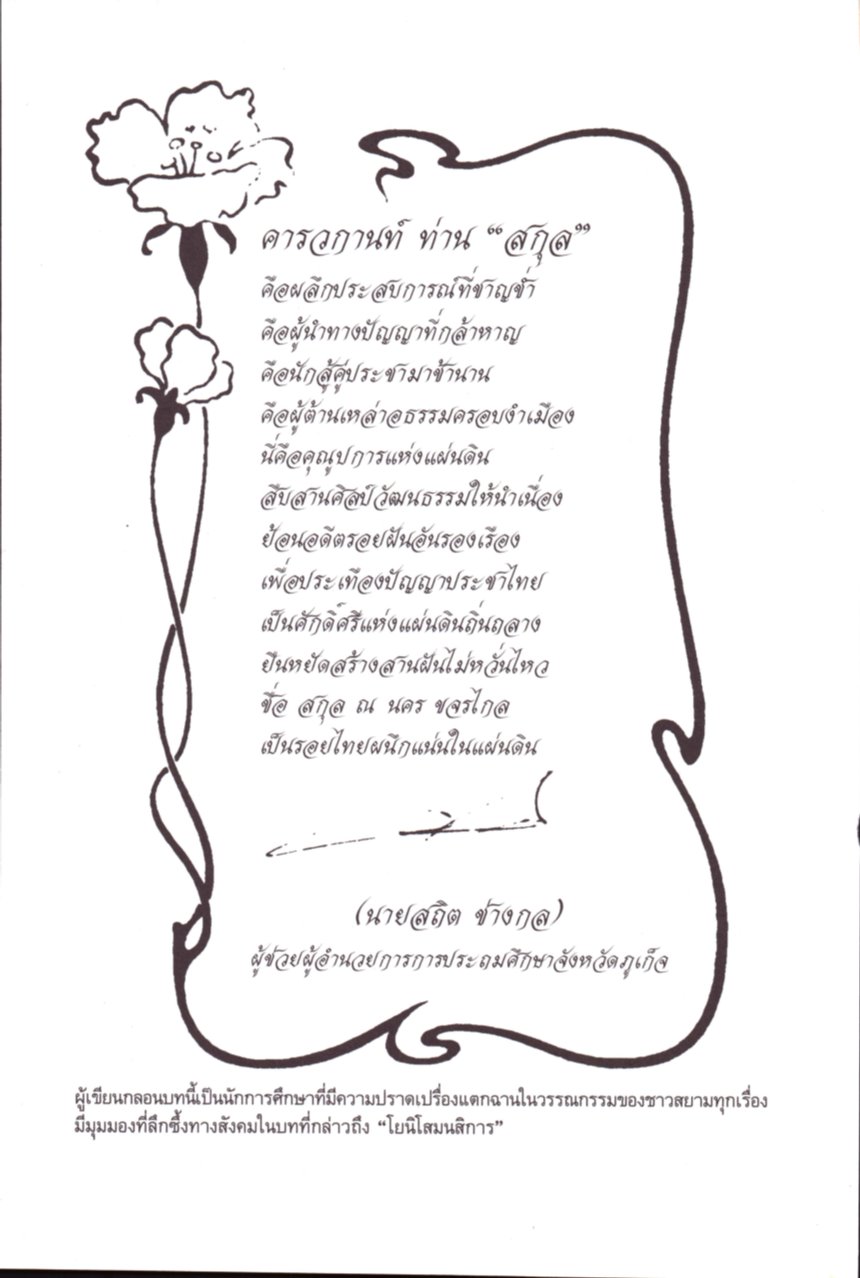 คารวกานท์ ท่าน “สกุล”
คือผลึกประสบการณ์ที่ชาญช่ำ
คือผู้นำทางปัญญาที่กล้าหาญ
คือนักสู้คู่ประชามาช้านาน
คือผู้ต้านเหล่าอธรรมครอบงำเมือง
นี่คือคุณูปการแห่งแผ่นดิน
สืบสานศิลป์วัฒนธรรมให้นำเนื่อง
ย้อนอดีตรอยฝันอันรองเรือง
เพื่อประเทืองปัญญาประชาไทย
เป็นศักดิ์ศรีแห่งแผ่นดินถิ่นถลาง
ยืนหยัดสร้างสานฝันไม่หวั่นไหว
ชื่อ สกุล ณ นคร ขจรไกล
เป็นรอยไทยผนึกแน่นในแผ่นดิน
(นายสถิต ช่างกล)
ผู้ช่วยผู้อำนวยการการประถมศึกษาจังหวัดภูเก็จ
ผู้เขียนกลอนบทนี้เป็นนักการศึกษาที่มีความปราดเปรื่องแตกฉานในวรรณกรรมของชาวสยามทุกเรื่อง
มีมุมมองที่ลึกซึ้งทางสังคมในบทที่กล่าวถึง “โยนิโสมนสิการ”